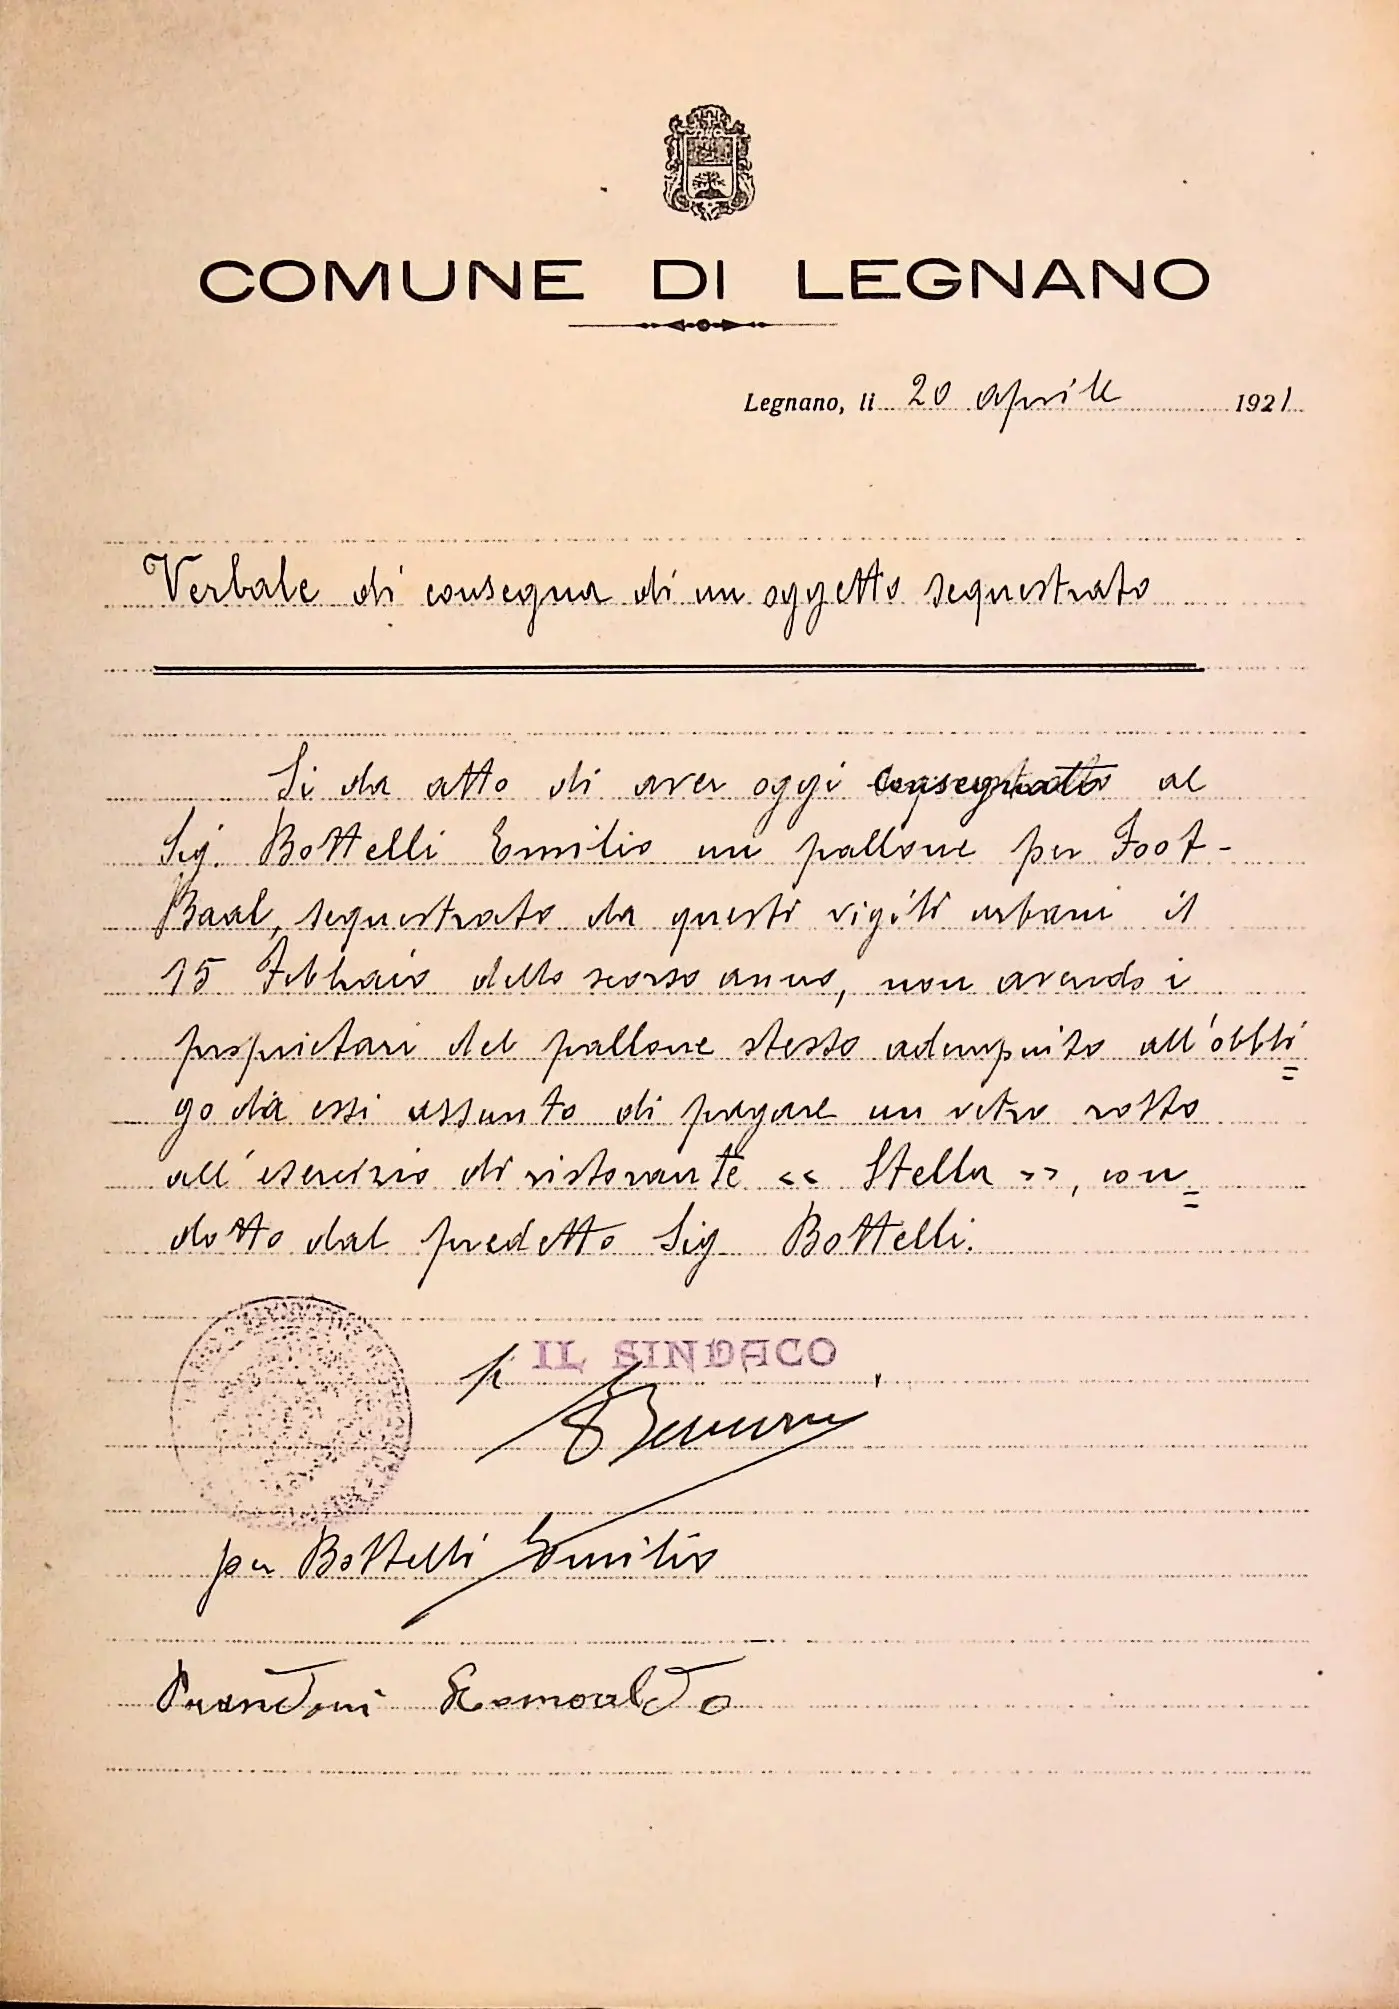 COMUNE DI LEGNANO
Legnano, li 20 aprile 1921
Verbale di consegna di un oggetto sequestrato
Si da atto di aver oggi consegnato al
Sig. Bottelli Emilio un pallone per Foot-
Baal, sequestrato da questi vigili urbani il
15 Febbraio dello scorso anno, non avendo i
proprietari del pallone stesso adempuito all'obbli=
go da essi assunto di pagare un vetro rotto
all'esercizio di ristorante << Stella >>, con=
dotto dal predetto Sig Bottelli.
IL SINDACO
per Bottelli Emilio
Prandoni Romoaldo